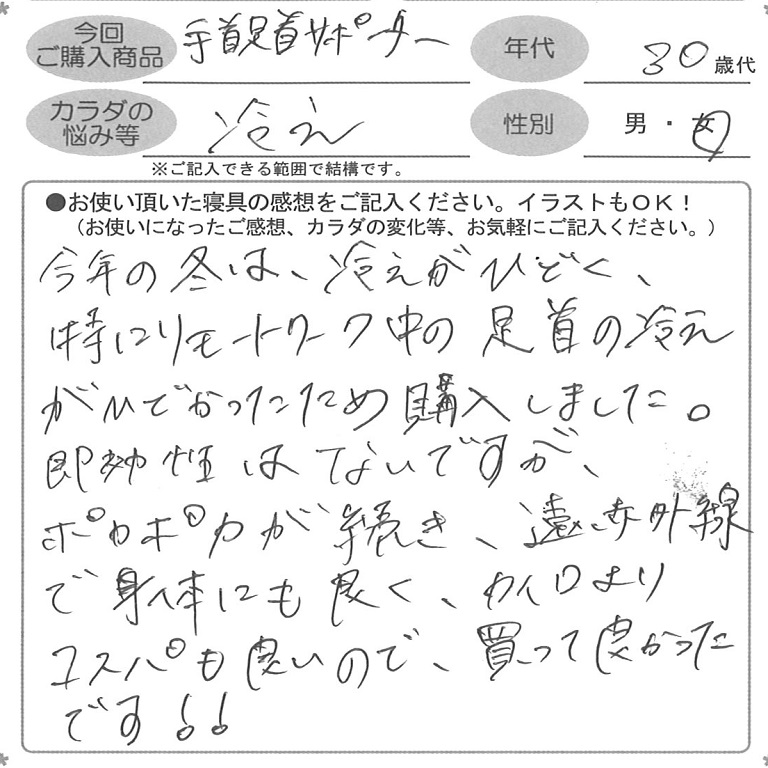 今回
ご購入商品
手首足首サポーター
年代
30歳代
カラダの
悩み等
冷え
性別
男・女
※ご記入できる範囲で結構です。
●お使い頂いた寝具の感想をご記入ください。イラストもOK！
（お使いになったご感想、カラダの変化等、お気軽にご記入ください。）
今年の冬は、冷えがひどく、
特にリモートワーク中の足首の冷え
がひどかったため購入しました。
即効性はないですが、
ポカポカが続き、遠赤外線
で身体にも良く、カイロより
コスパも良いので、買って良かった
です！！